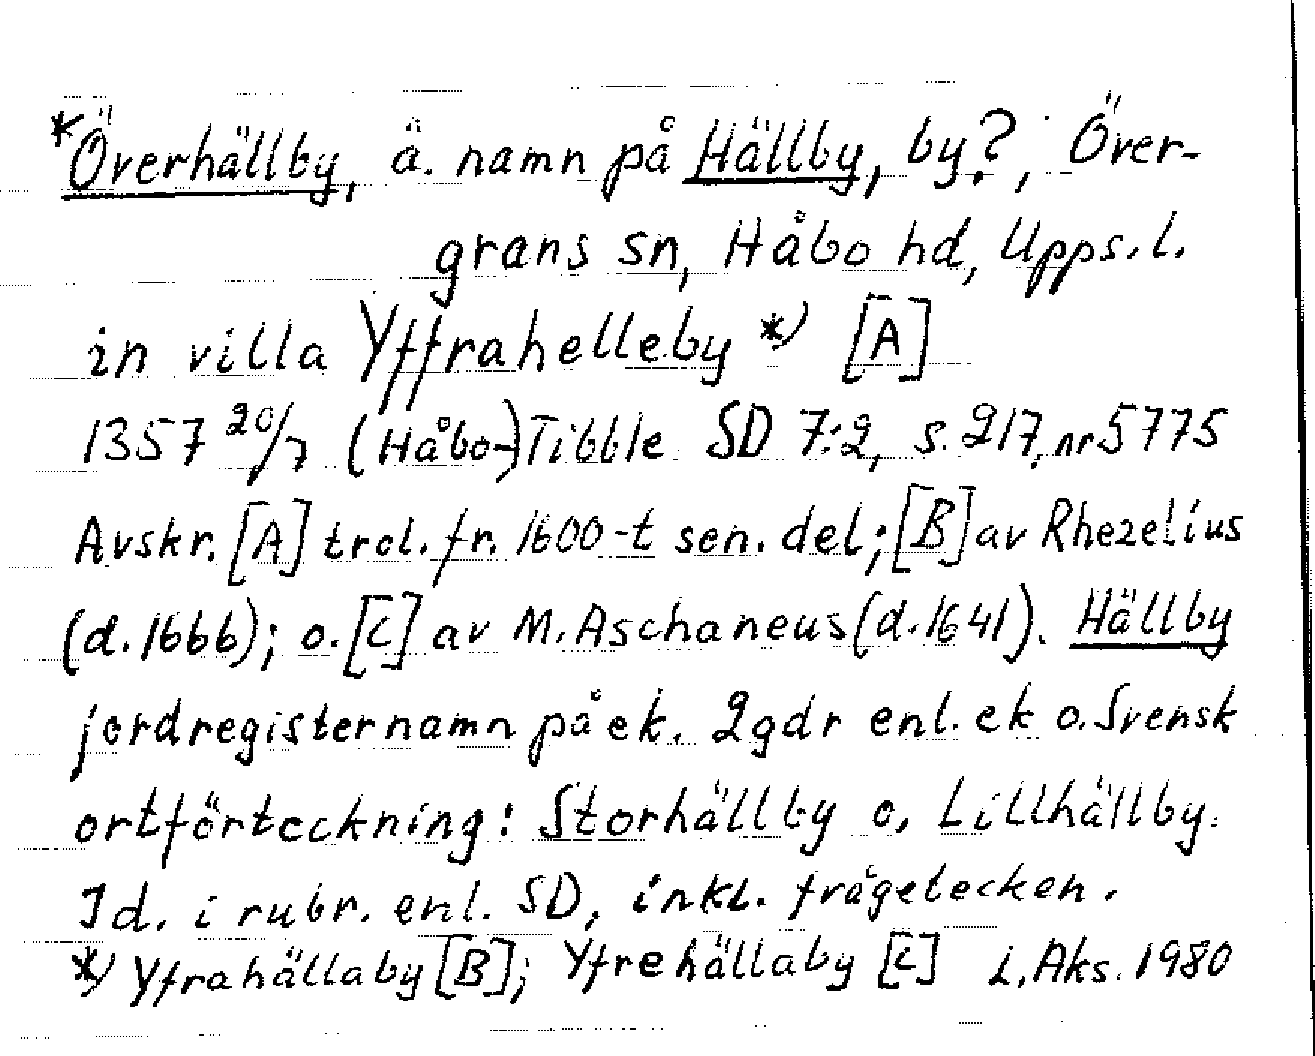 *Överhällby, ä. namn på Hällby, by?, Över-
grans sn, Håbo hd, Upps. l.
in villa Yffrahelleby *) [A]
1357 20/7 (Håbo-)Tibble SD 7:2, s. 217, nr 5775
Avskr. [A] trol. fr. 1600-t sen. del; [B] av Rhezelius
(d. 1666); o. [C] av M. Aschaneus (d. 1641). Hällby
jordregisternamn på ek. 2 gdr enl. ek o. Svensk
ortförteckning: Storhällby o, Lillhällby.
Id. i rubr. enl. SD, inkl. frågetecken.
*) Yfrahällaby [B]; Yfrehällaby [C] L. Aks. 1980